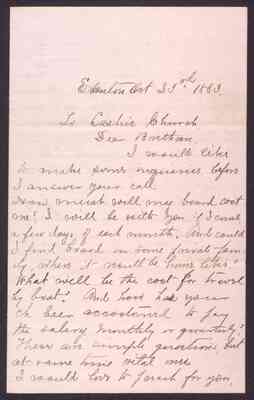 Edenton Oct 23rd 1883.
To Cashie Church
Dear Brethren
I would like
to make some inquiries before
I answer your call
How much will my board cost
me? I will be with you if I come
a few days of each month. And could
I find board in some private fam
ily where it would be "home like."
What will be the cost for travel
by boat? And how has your
ch been accustomed to pay
the salary monthly or quarterly?
These are simple questions, but
at same time vital ones
I would love to preach for you,